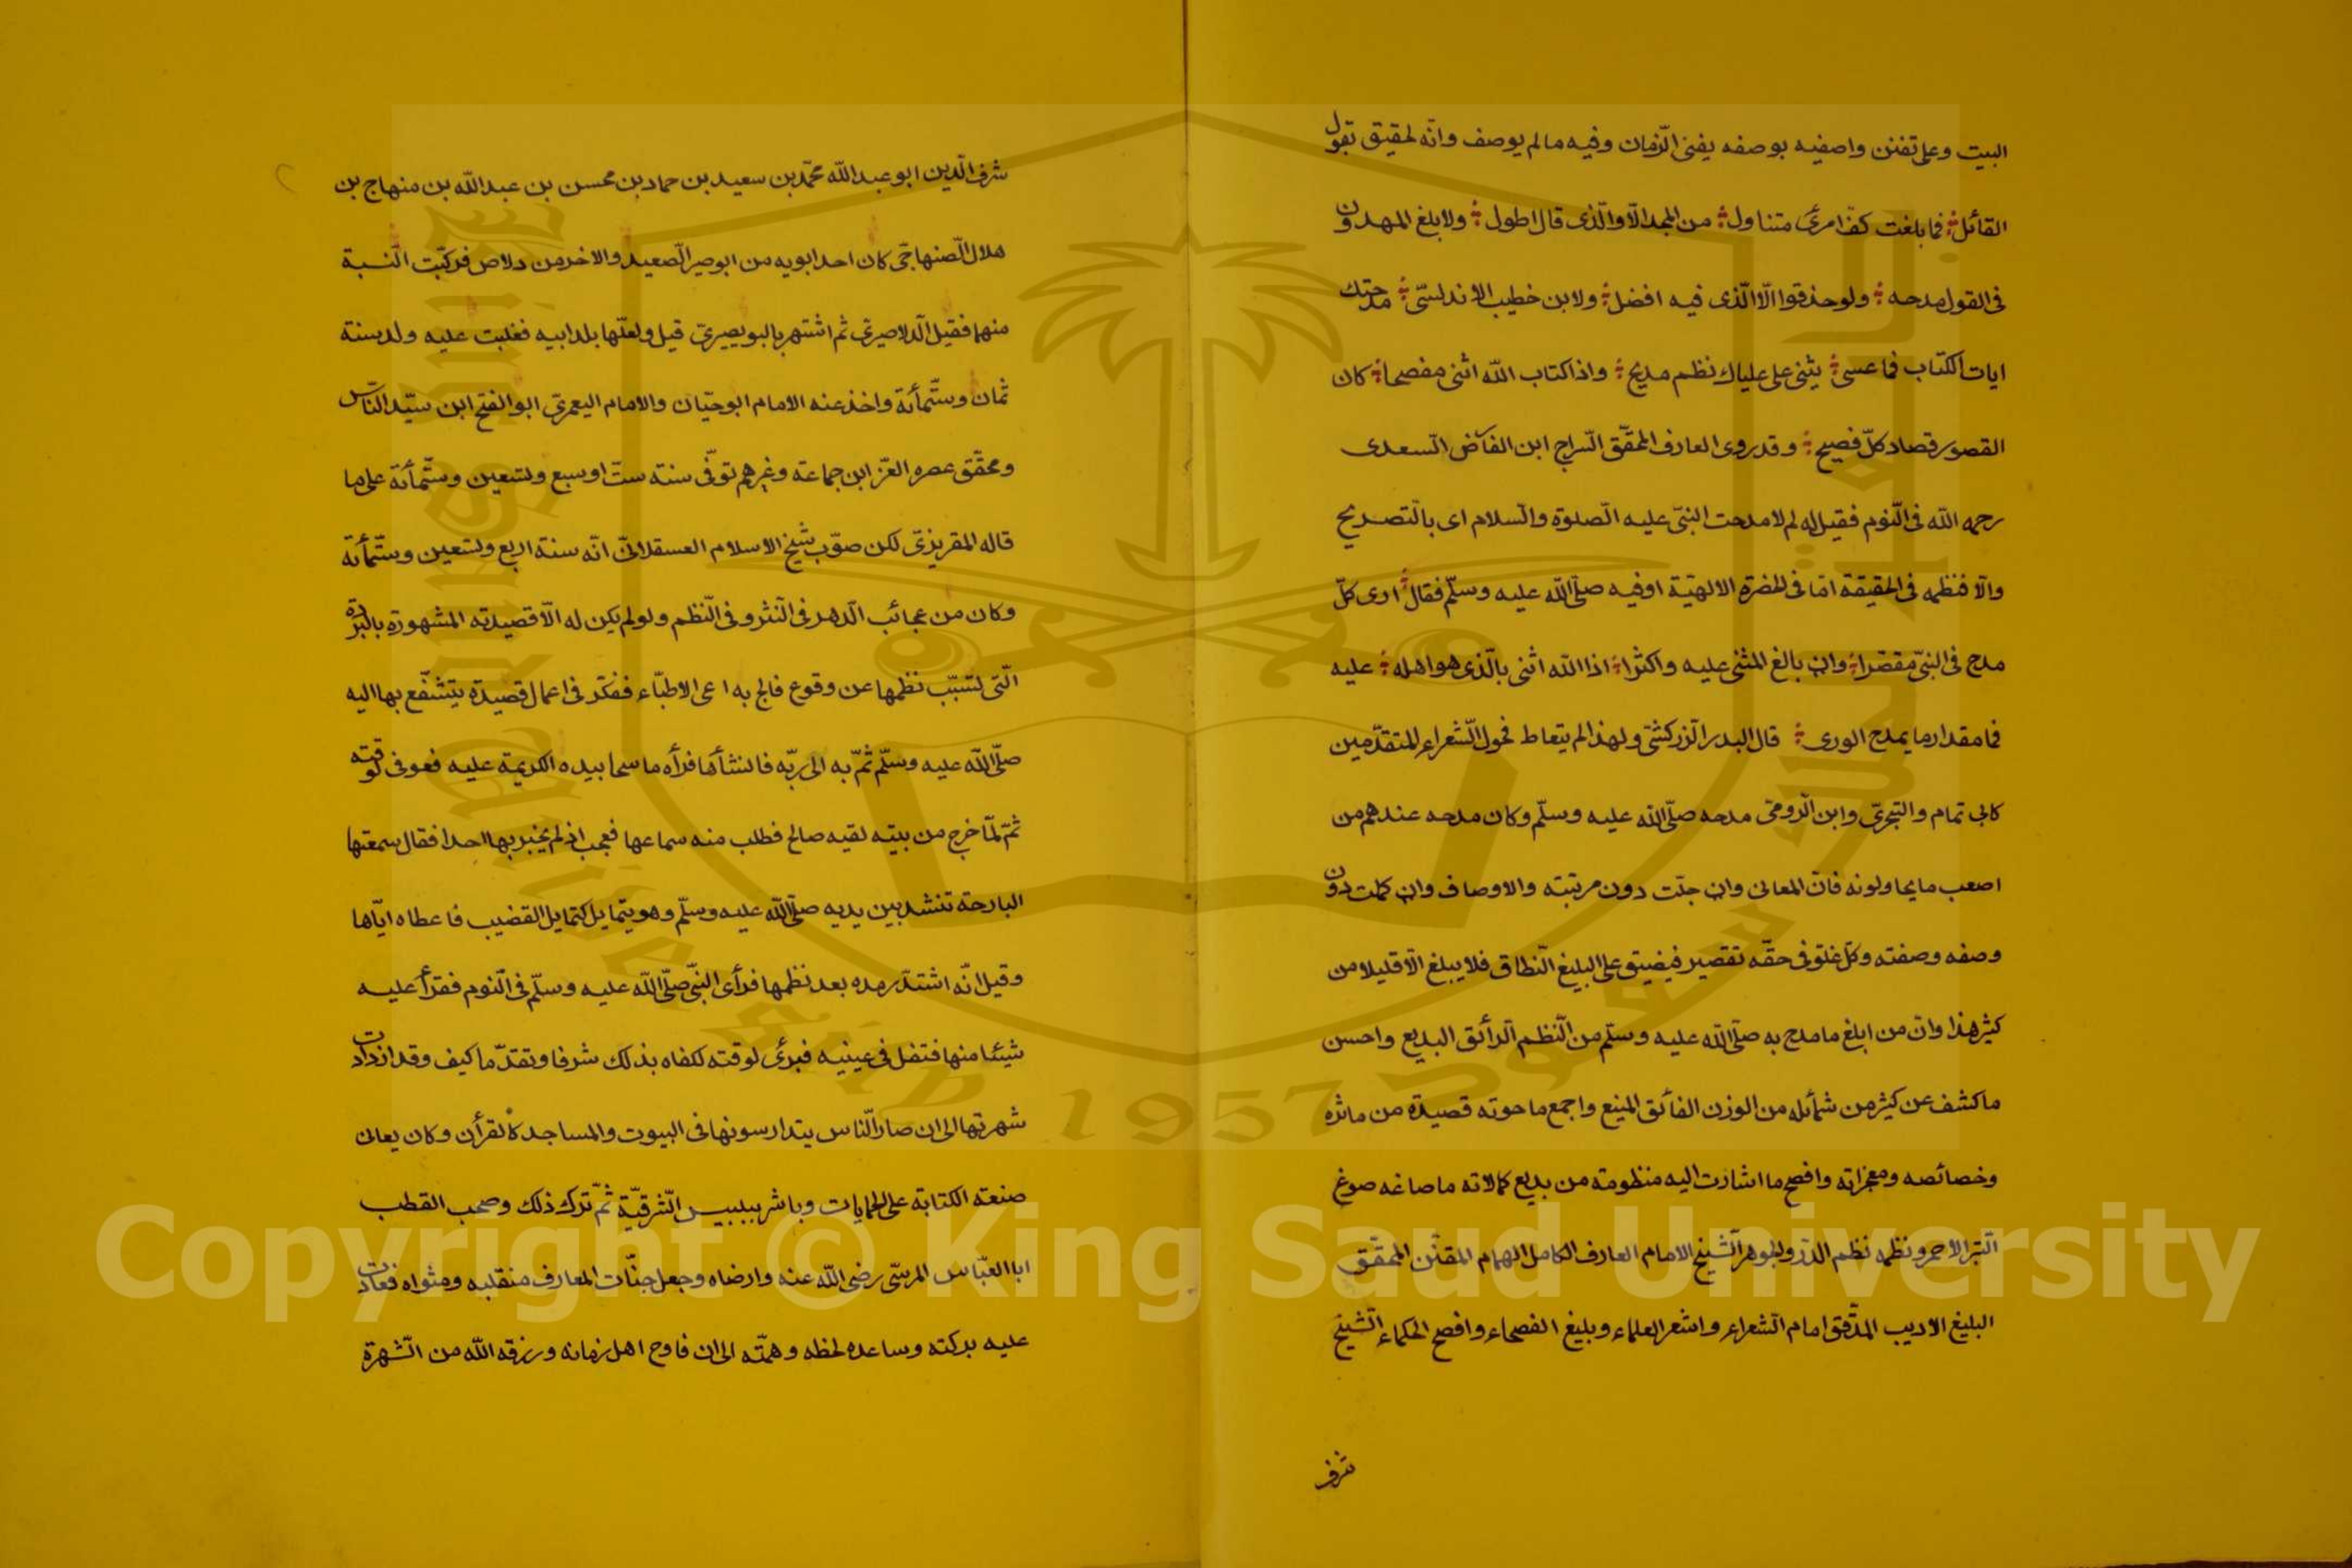 البيت وعلى تفنن واصفيه بوصفه يفنى الزّمان وفيه ما لم يوصف وانّه لحقيق بقول
القائل فما بلغت كفّ امرئ متناول من المجد الّا والّذى قال اطول ولا بلغ المهدون
فى القول مدحه ولو حذقوا الّا الّذى فيه افضل ولابن خطيب الاندلسىّ مدحتك
ايات الكتاب فما عسى يثنى على علياك نظم مديح واذا كتاب الله اثنى مفصحا كان
القصور قصاد كلّ فصيح وقد روى العارف المحقّق السّراج ابن الفآض السّعدى
رحمه الله فى النّوم فقيل له لم لا مدحت النبىّ عليه الصّلوة والسّلام اى بالتّصريح
والّا فنظمه فى الحقيقة امّا فى الحضرة الالهيّة اوفيه صلّى اللّه عليه وسلّم فقال ارى كلّ
مدح فى النبىّ مقصّرا وان بالغ المثنى عليه واكثرا اذا اللّه اثنى بالّذى هو اهله عليه
فما مقدار ما يمدح الورى قال البدر الزّركشىّ ولهذا لم يتعاط فحول الشّعراء المتقدّمين
كابى تمام والبحترىّ وابن الرّومىّ مدحه صلّى اللّه عليه وسلّم وكان مدحه عندهم من
اصعب ما يحاولونه فانّ المعانى وان جلّت دون مرتبته والاوصاف وان كملت دون
وصفه وصفته وكلّ غلوّ فى حقّه تقصير فيضيق على البليغ النّطاق فلا يبلغ الّا قليلا من
كثير هذا وانّ من ابلغ ما مدح به صلّى اللّه عليه وسلّم من النّظم الرّائق البديع واحسن
ما كشف عن كثير من شمائله من الوزن الفائق المنيع واجمع ما حوته قصيدة من ماثره
وخصائصه ومعجزاته وافصح ما اشارت اليه منظومة من بديع كمالاته ما صاغه صوغ
التّبر الاحمر ونظمه نظم الدّرّ والجوهر الشّيخ الامام العارف الكامل الهمام المفنّن المحقّق
البليغ الاديب المدقّق امام الشّعراء واشعر العلماء وبليغ الفصحاء وافصح الحكماء الشّيخ
شرف
شرف الّدين ابو عبد اللّه محمّد بن سعيد بن حماد بن محسن بن عبد اللّه بن منهاج بن
هلال الصّنهاجىّ كان احد ابويه من ابوصير الصّعيد والاخر من دلاص فركّبت النّسبة
منهما فقيل الدّلاصيرىّ ثم اشتهر بالبويصيرىّ قيل ولعلّها بلد ابيه فغلبت عليه ولد سنة
ثمان وستّمأئة واخذ عنه الامام ابو حيّان والامام اليعمرىّ ابو الفتح ابن سيّد النّاس
ومحقّق عصره العزّ ابن جماعة وغيرهم توفّى سنة ستّ او سبع وتسعين وستّمأئة على ما
قاله المقريزىّ لكن صوّب شيخ الاسلام العسقلانىّ انّه سنة اربع وتسعين وستّمأئة
وكان من عجائب الدّهر فى النّثر وفى النّظم ولو لم يكن له الّا قصيدته المشهورة بالبردة
الّتى تسبّب نظمها عن وقوع فالج به اعى الاطبّاء ففكّر فى اعمال قصيدة يتشفّع بها اليه
صلّى اللّه عليه وسلّم ثمّ به الى ربّه فانشأها فرأه ماسحا بيده الكريمة عليه فعوفى لوقته
ثمّ لمّا خرج من بيته لقيه صالح فطلب منه سماعها فعجب اذ لم يخبر بها احدا فقال سمعتها
البارحة تنشد بين يديه صلّى اللّه عليه وسلّم وهو يتمايل كتمايل القضيب فاعطاه ايّاها
وقيل انّه اشتدّ رمده بعد نظمها فرأى النبّى صلّى اللّه عليه وسلّم فى النّوم فقرأ عليه
شيئا منها فتفل فى عينيه فبرئ لوقته لكفاه بذلك شرفا وتقدّما كيف وقد ازدادت
شهرتها الى ان صار النّاس يتدارسونها فى البيوت والمساجد كالقرأن وكان يعانى
صنعة الكتابة على الجبايات وباشر ببلبيس الشّرقيّة ثمّ ترك ذلك وصحب القطب
ابا العبّاس المرسىّ رضى اللّه عنه وارضاه وجعل جنّات المعارف منقلبه ومثواه فعادت
عليه بركته وساعده لحظه وهمّته الى ان فاق اهل زمانه ورزقه اللّه من الشّهرة
Copyright © King Saud University
1957